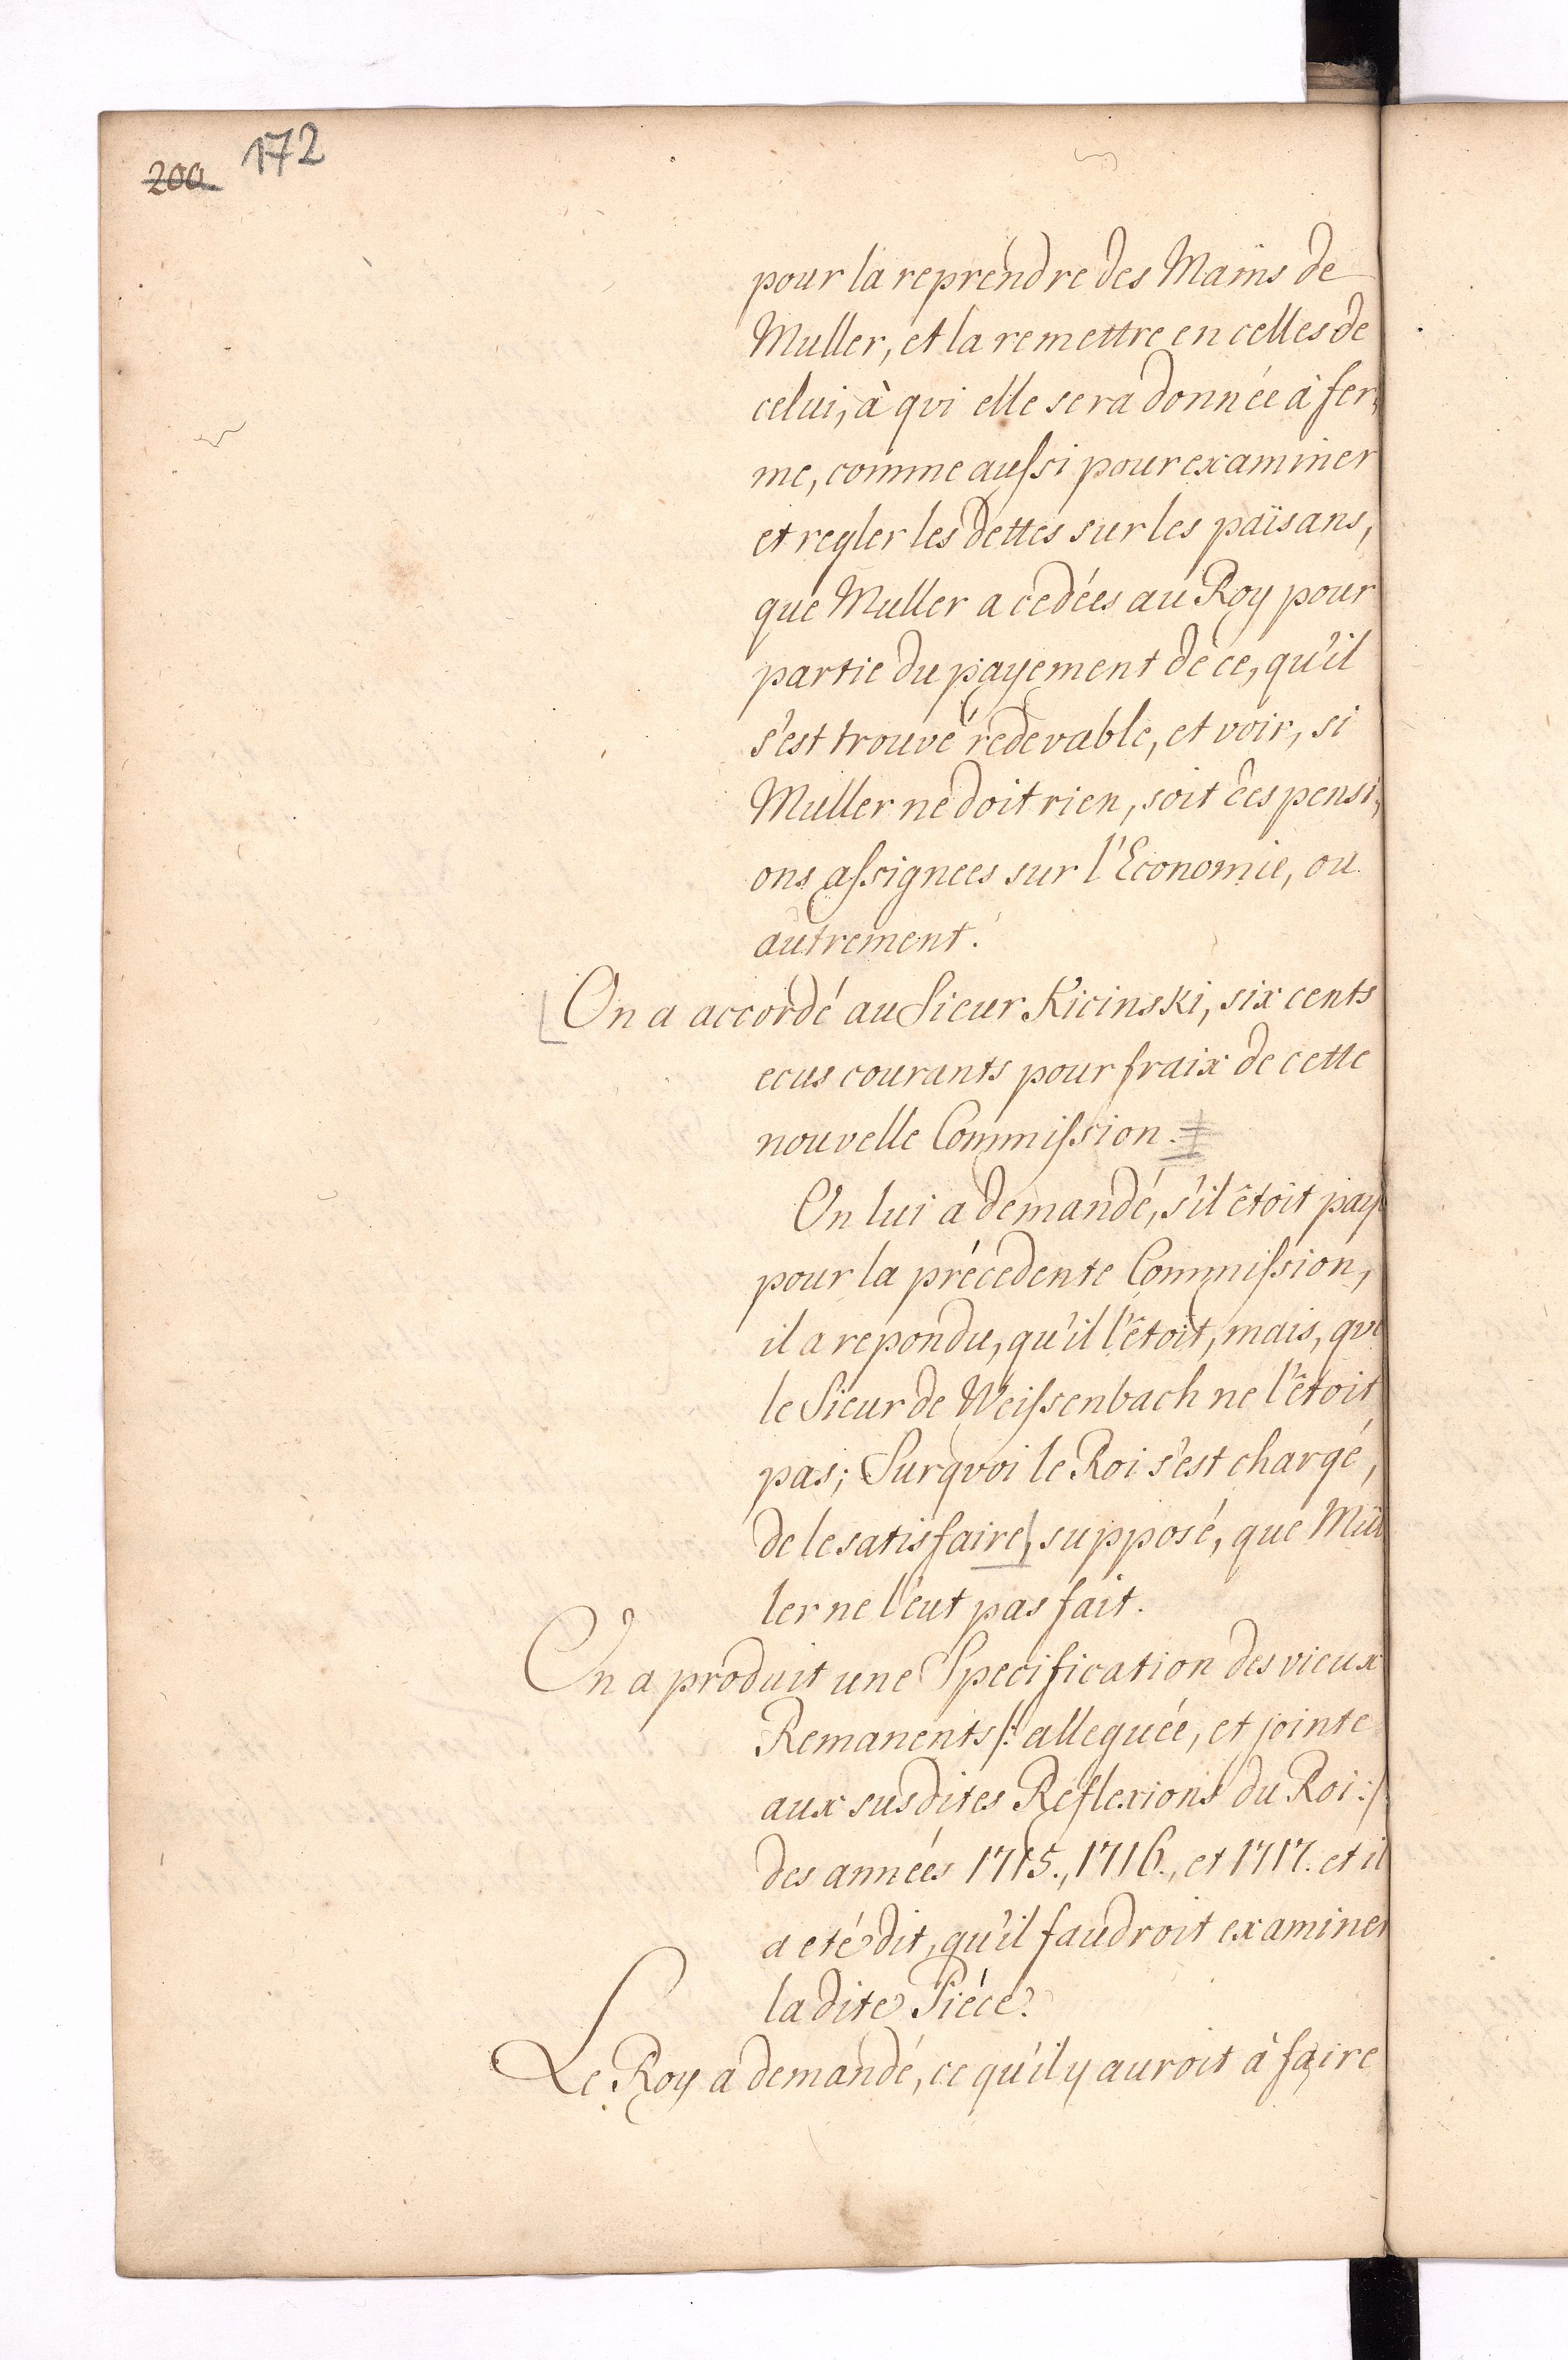 200 172
pour la reprendre des Mains de
Muller, et la remettre en celles de
celui, à qvi elle sera donnée à fer,
me, comme aussi pour examiner
et regler les dettes sur les païsans,
que Muller a cedées au Roy pour
partie du payement de ce, qu'il
s'est trouvé redevable, et voir, si
Muller ne doit rien, soit des pensi,
ons assignees sur l'Economie, ou
autrement.
On a accordé au Sieur Kicinski, six cents
ecus courants pour fraix de cette
nouvelle Commission.
On lui a demandé, s'il êtoit pay
pour la précedente Commission,
il a repondu, qu'il l'êtoit, mais, qve
le Sieur de Weissenbach ne l'êtoit
pas; Surqvoi le Roi s'est chargé,
de le satisfaire, supposé, que Mül
ler ne l'eut pas fait.
On a produit une Specification des vieux
Remanents /: alleguée, et jointe
aux susdites Reflexions du Roi :/
des années 1715., 1716., et 1717. et il
a eté dit, qu'il faudroit examiner
la dite Piéce.
Le Roy a demandé, ce qu'il y auroit à faire